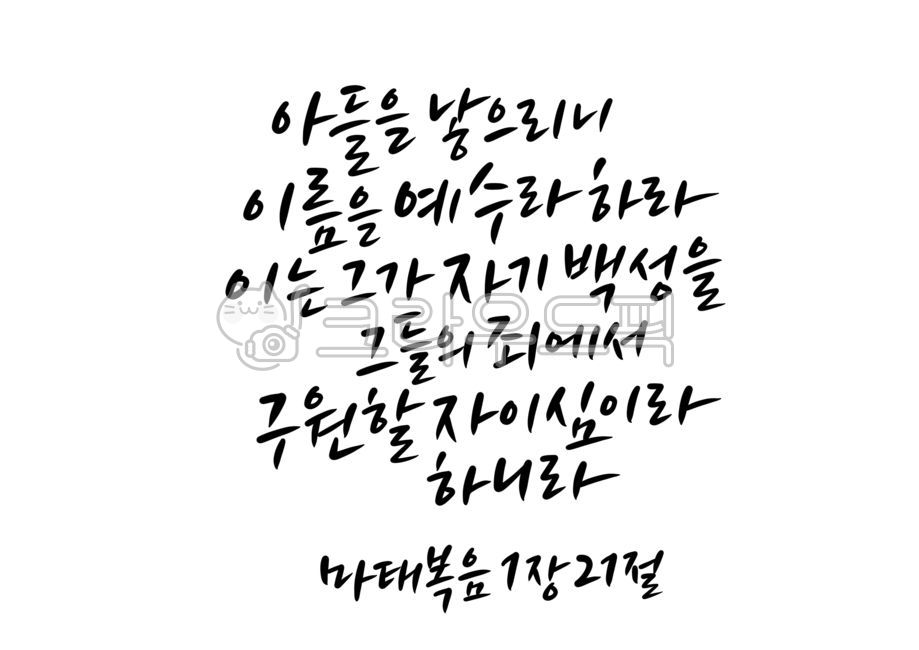 아들을 낳으리니
이름을 예수라 하라
이는 그가 자기 백성을
크라우드픽
그들의 죄에서
구원할 자이심이라
하니라
마태복음 1장 21절